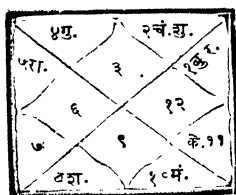 ४गु. २चं.शु.
५रा. ३ १बु.र.
६ १२
७ ९ के.११
८श. १०मं.